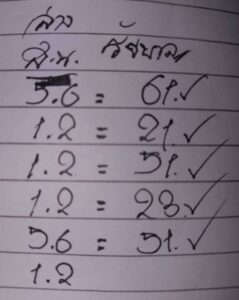 ล่าง
ส.น. รัฐบาล
5.6 = 61.✓
1.2 = 21.✓
1.2 = 51.✓
1.2 = 23.✓
5.6 = 51.✓
1.2